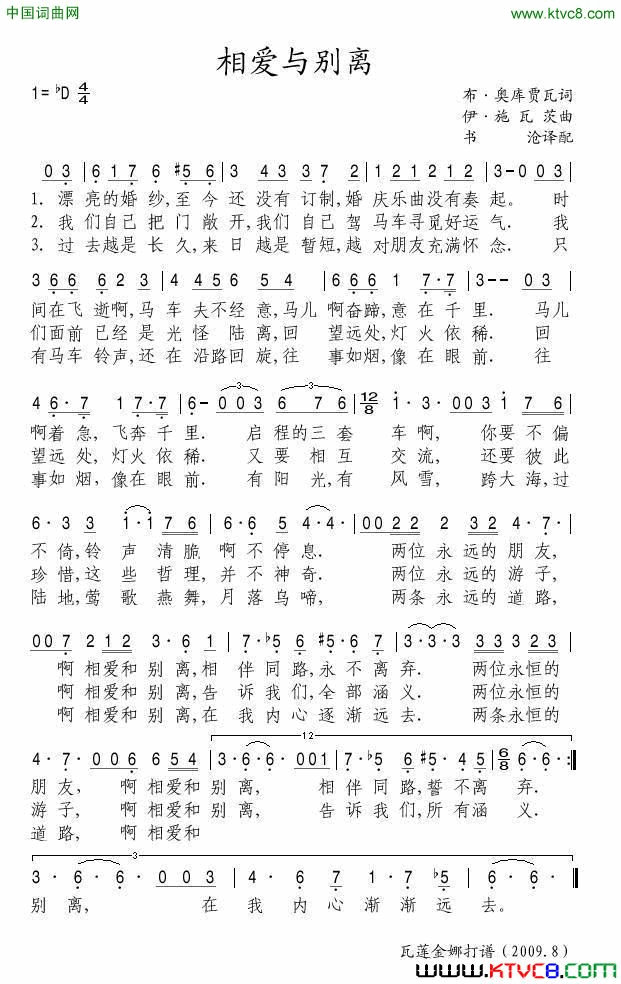 中国词曲网
www.ktvc8.com
相爱与别离
1= ♭D 4/4
布·奥库贾瓦词
伊·施瓦茨曲
书 沧译配
0 3 | 6 1 7 6 #5 6 | 3 4 3 3 7 | 1 2 1 2 1 2 | 3 - 0 0 3 |
1. 漂亮的婚纱,至今还没有订制,婚庆乐曲没有奏起。时
2. 我们自己把门敞开,我们自己驾马车寻觅好运气.我
3. 过去越是长久,来日越是暂短,越对朋友充满怀念.只
3 6 6 6 2 3 | 4·5 4 6 5 4 | 3 6 6 6 2 | 1 7·7 | 3 - - 0 3 |
间在飞逝啊,马车夫不经意,马儿啊奋蹄,意在千里.马儿
们面前已经是光怪陆离,回望远处,灯火依稀.回
有马车铃声,还在沿路回旋,往事如烟,像在眼前.往
4 6·7 1 7·7 | 6 - 0 0 3 6 7 6 | 12/8 1·3·0 0 3 1 7 1 |
3
3
啊着急,飞奔千里.启程的三套车啊,你要不偏
望远处,灯火依稀.又要相互交流,还要彼此
事如烟,像在眼前.有阳光,有风雪,跨大海,过
6·3 3 1·1 7 6 | 6·6 5 4·4· | 0 0 2 2 2 7 2 4 |
不倚,铃声清脆啊不停息.两位永远的朋友,
珍惜,这些哲理,并不神奇.两位永远的游子,
陆地,莺歌燕舞,月落乌啼,两条永远的道路,
0 0 7 2 1 2 3·6 1 | 7·♭5 6 #5·6 7 | 3·3·3 3 3 3 2 3 |
啊相爱和别离,相伴同路,永不离弃.两位永恒的
啊相爱和别离,告诉我们,全部涵义.两位永恒的
啊相爱和别离,在我内心逐渐远去.两条永恒的
4·7·0 0 6 6 5 4 | 3·6·6·0 0 1 | 7·♭5 6 #5·4 5 | 6/8 6·6· :||
12
朋友,啊相爱和别离,相伴同路,誓不离弃.
游子,啊相爱和别离,告诉我们,所有涵义.
道路,啊相爱和
3
3·6·6·0 0 3 | 4·6 7 1·7 ♭5 | 6·6·6·6· ||
别离,在我内心渐渐远去。
瓦莲金娜打谱(2009.8)
www.KTVC8.com